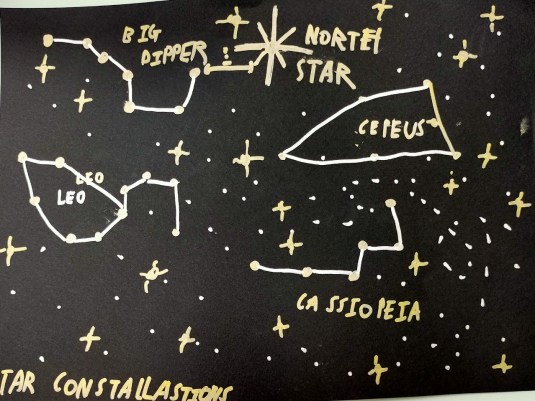 BIG
DIPPER
NORTH
STAR
CEPEUS
LEO
LEO
CASSIOPEIA
TAR CONSTALLASTIONS